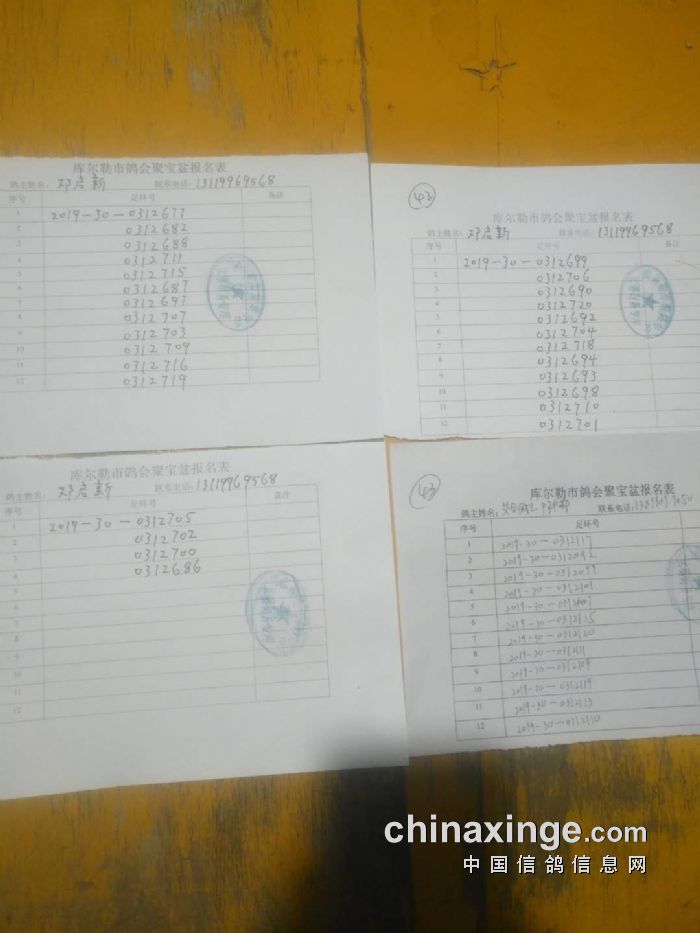 库尔勒市鸽会聚宝盆报名表
鸽主姓名: 邓启新 联系电话: 13119969568
序号 足环号 备注
1 2019-30-0312677
2 0312682
3 0312688
4 0312711
5 0312715
6 0312687
7 0312697
8 0312707
9 0312703
10 0312709
11 0312716
12 0312719
42
库尔勒市鸽会聚宝盆报名表
鸽主姓名: 邓启新 联系电话: 13119969568
序号 足环号 备注
1 2019-30-0312699
2 0312706
3 0312690
4 0312720
5 0312692
6 0312704
7 0312718
8 0312694
9 0312693
10 0312698
11 0312710
12 0312701
库尔勒市鸽会聚宝盆报名表
鸽主姓名: 邓启新 联系电话: 13119969568
序号 足环号 备注
1 2019-30-0312705
2 0312702
3 0312700
4 0312686
5
6
7
8
9
10
11
12
43
库尔勒市鸽会聚宝盆报名表
鸽主姓名: 联系电话:
序号 足环号
1 2019-30-0312117
2 2019-30-0312092
3 2019-30-0312099
4 2019-30-0312101
5 2019-30-0312100
6 2019-30-0312115
7 2019-30-0312120
8 2019-30-0312111
9 2019-30-0312109
10 2019-30-0312119
11 2019-30-0312113
12 2019-30-0312110
chinaxinge.com
中国信鸽信息网